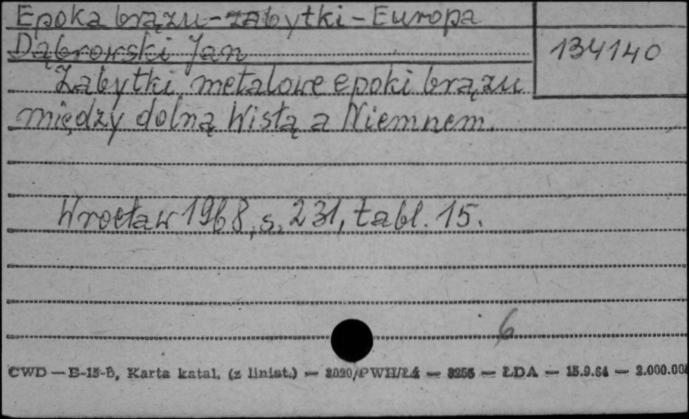 Epoka brązu - zabytki - Europa
Dąbrowski Jan
134140
Zabytki metalowe epoki brązu
między dolną Wisłą a Niemnem.
Wrocław 1968, s. 231, tabl. 15.
6
CWD — B-15-B, Karta katal. (z liniat.) — 2020/PWH/Ł4 — 8256 — ŁDA — 15.9.64 — 2.000.00